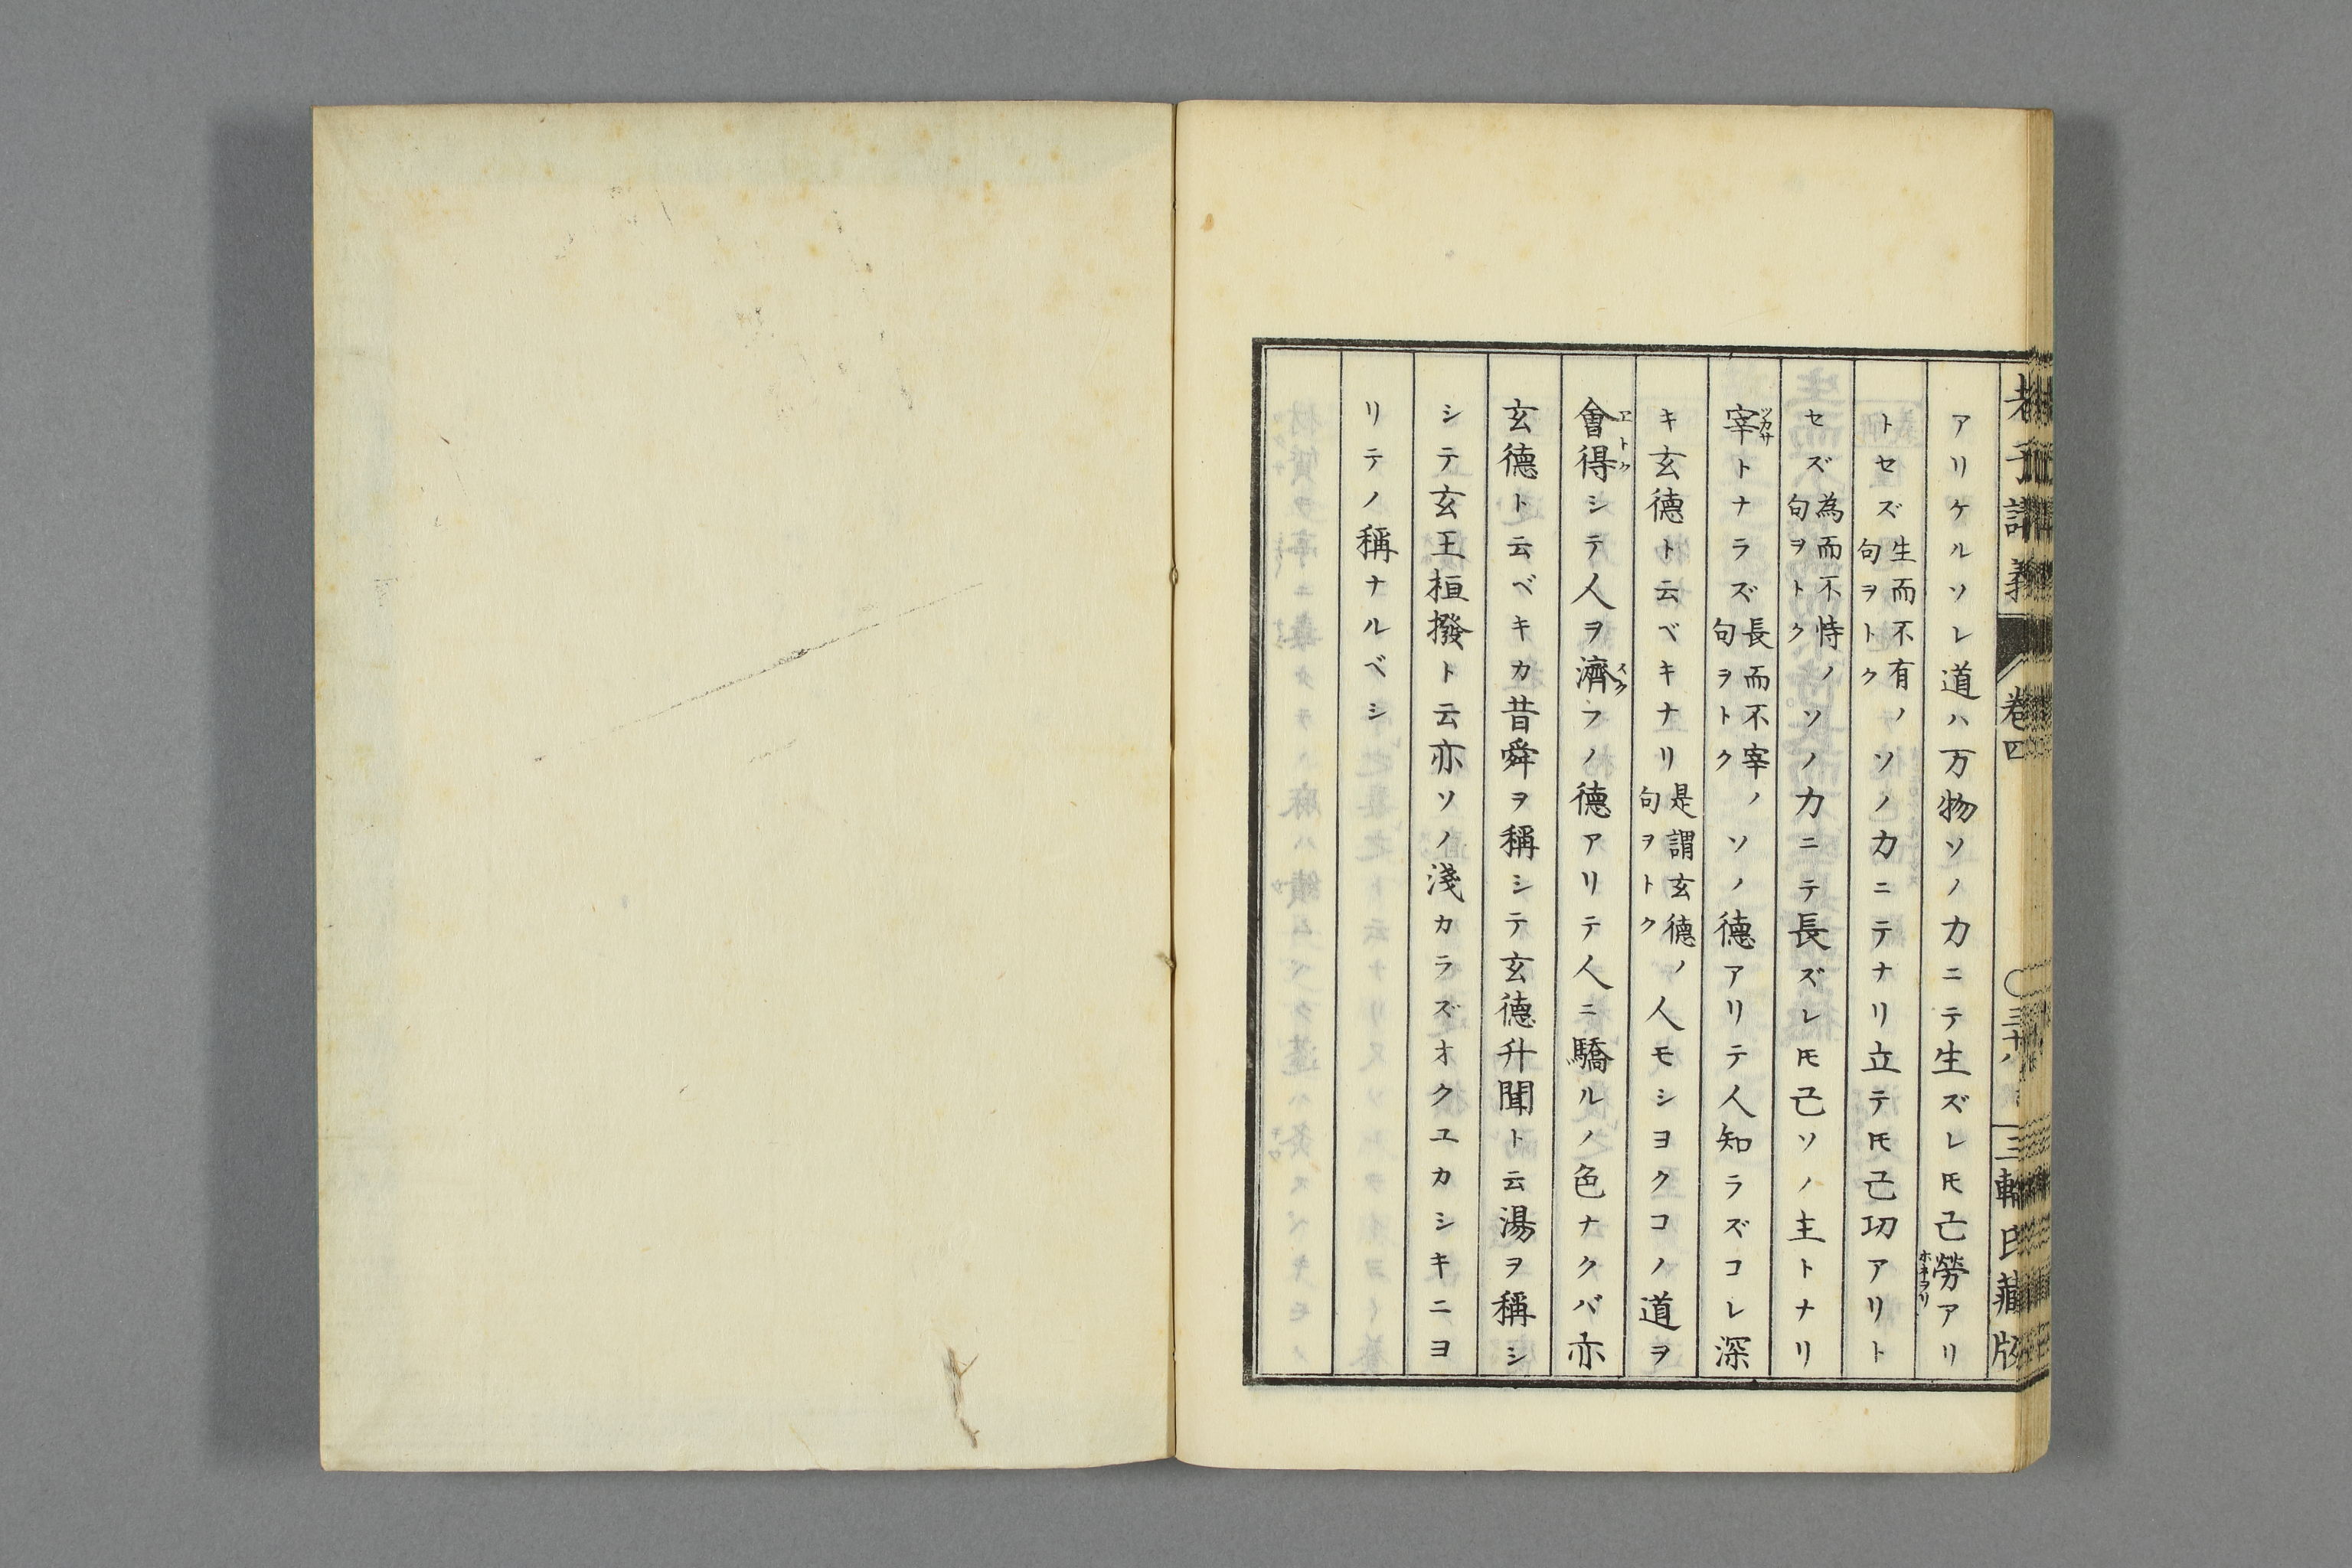 老子講義 巻四 三十八 三輪氏藏版
アリケルソレ道ハ万物ソノ力ニテ生ズレ𪜈己勞ホネヲリアリ
トセズ生而不有ノ句ヲトクソノ力ニテナリ立テ𪜈己功アリト
セズ為而不恃ノ句ヲトクソノ力ニテ長ズレ𪜈己ソノ主トナリ
宰ツカサトナラズ長而不宰ノ句ヲトクソノ德アリテ人知ラズコレ深
キ玄德ト云ベキナリ是謂玄德ノ句ヲトク人モシヨクコノ道ヲ
會得ヱトクシテ人ヲ濟スクフノ德アリテ人ニ驕ルノ色ナクバ亦
玄德ト云ベキカ昔舜ヲ稱シテ玄德升聞ト云湯ヲ稱シ
シテ玄王桓撥ト云亦ソノ淺カラズオクユカシキニヨ
リテノ稱ナルベシ